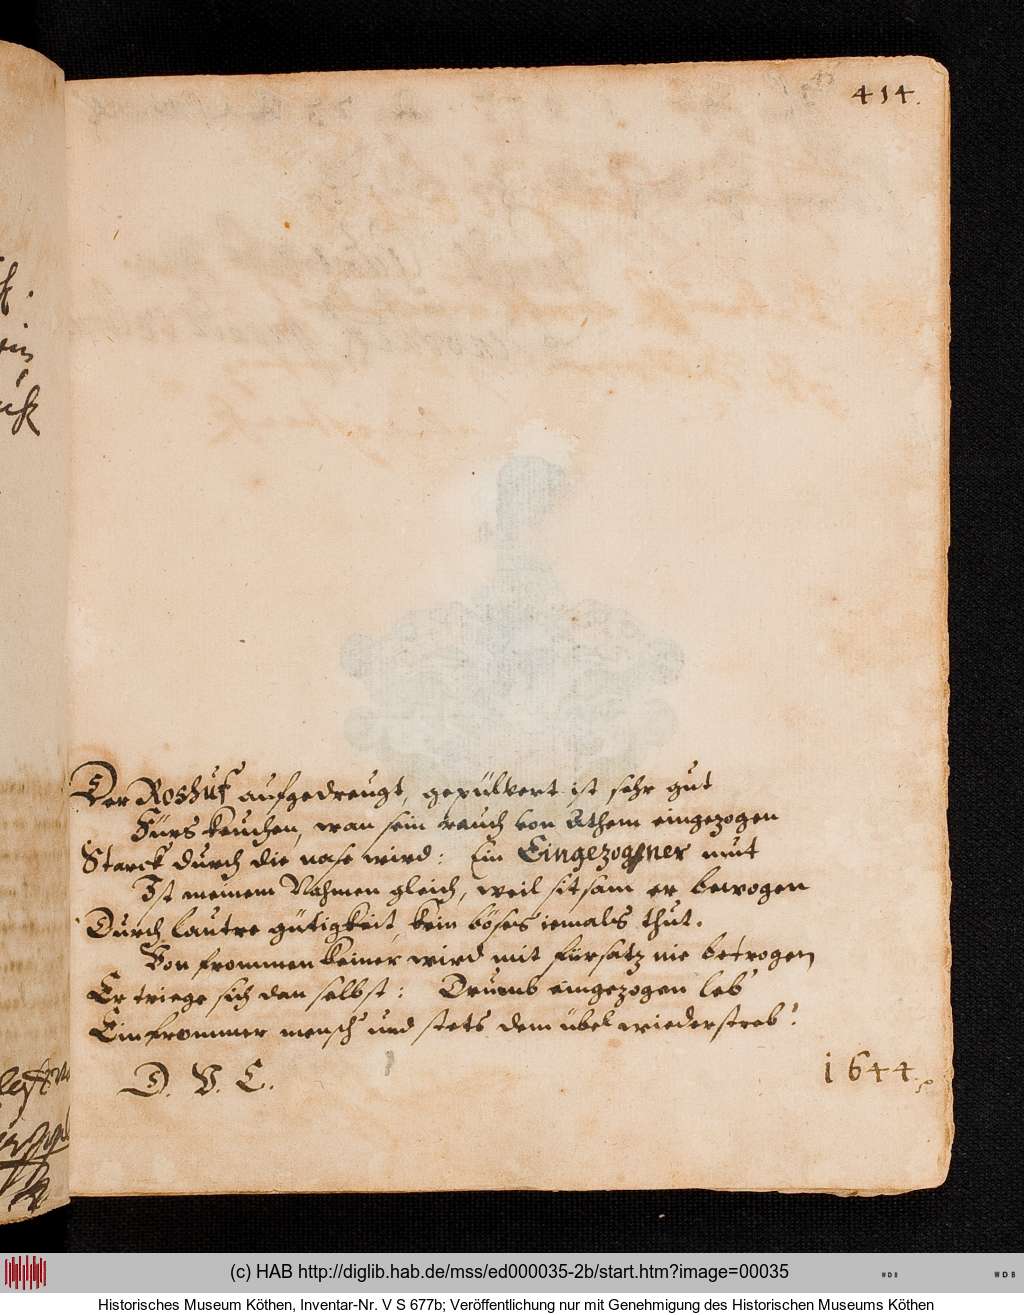 414.
Der Roshüf aufgedreugt, gepülvert ist sehr gut
Fürs keuchen, wan sein rauch von Athem eingezogen
Starck durch die nase wird: Ein Eingezogner mut
Ist meinem Nahmen gleich, weil sitsam er bewogen
Durch lautre gütigkeit, kein böses iemals thut.
Von frommen keiner wird mit fürsatz nie betrogen
Er triege sich dan selbst: Drumb eingezogen leb'
Ein frommer mensch und stets dem übel wiederstreb'.
D. V. C.
1644.
(c) HAB http://diglib.hab.de/mss/ed000035-2b/start.htm?image=00035
WDB
WDB
Historisches Museum Köthen, Inventar-Nr. V S 677b; Veröffentlichung nur mit Genehmigung des Historischen Museums Köthen